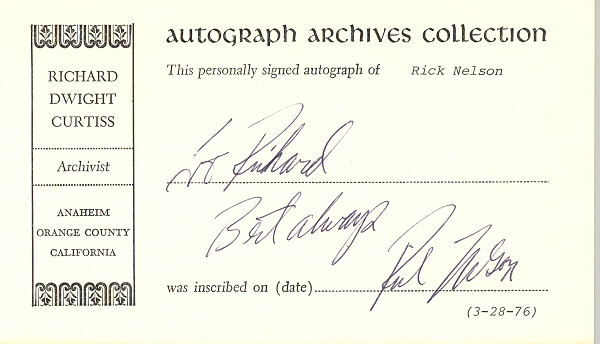 AUTOGRAPH ARCHIVES COLLECTION
This personally signed autograph of Rick Nelson
RICHARD
DWIGHT
CURTISS
Archivist
ANAHEIM
ORANGE COUNTY
CALIFORNIA
To Richard
Best always
Rick Nelson
was inscribed on (date)
(3-28-76)